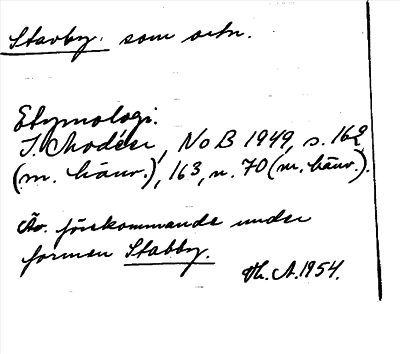 Stavby. som ortn.
Etymologi:
I. Modéer, NoB 1949, s. 162
(m. hänv.), 163, n. 70 (m. hänv.).
Äv. förekommande under
formen Stabby.
Vh. A. 1954.